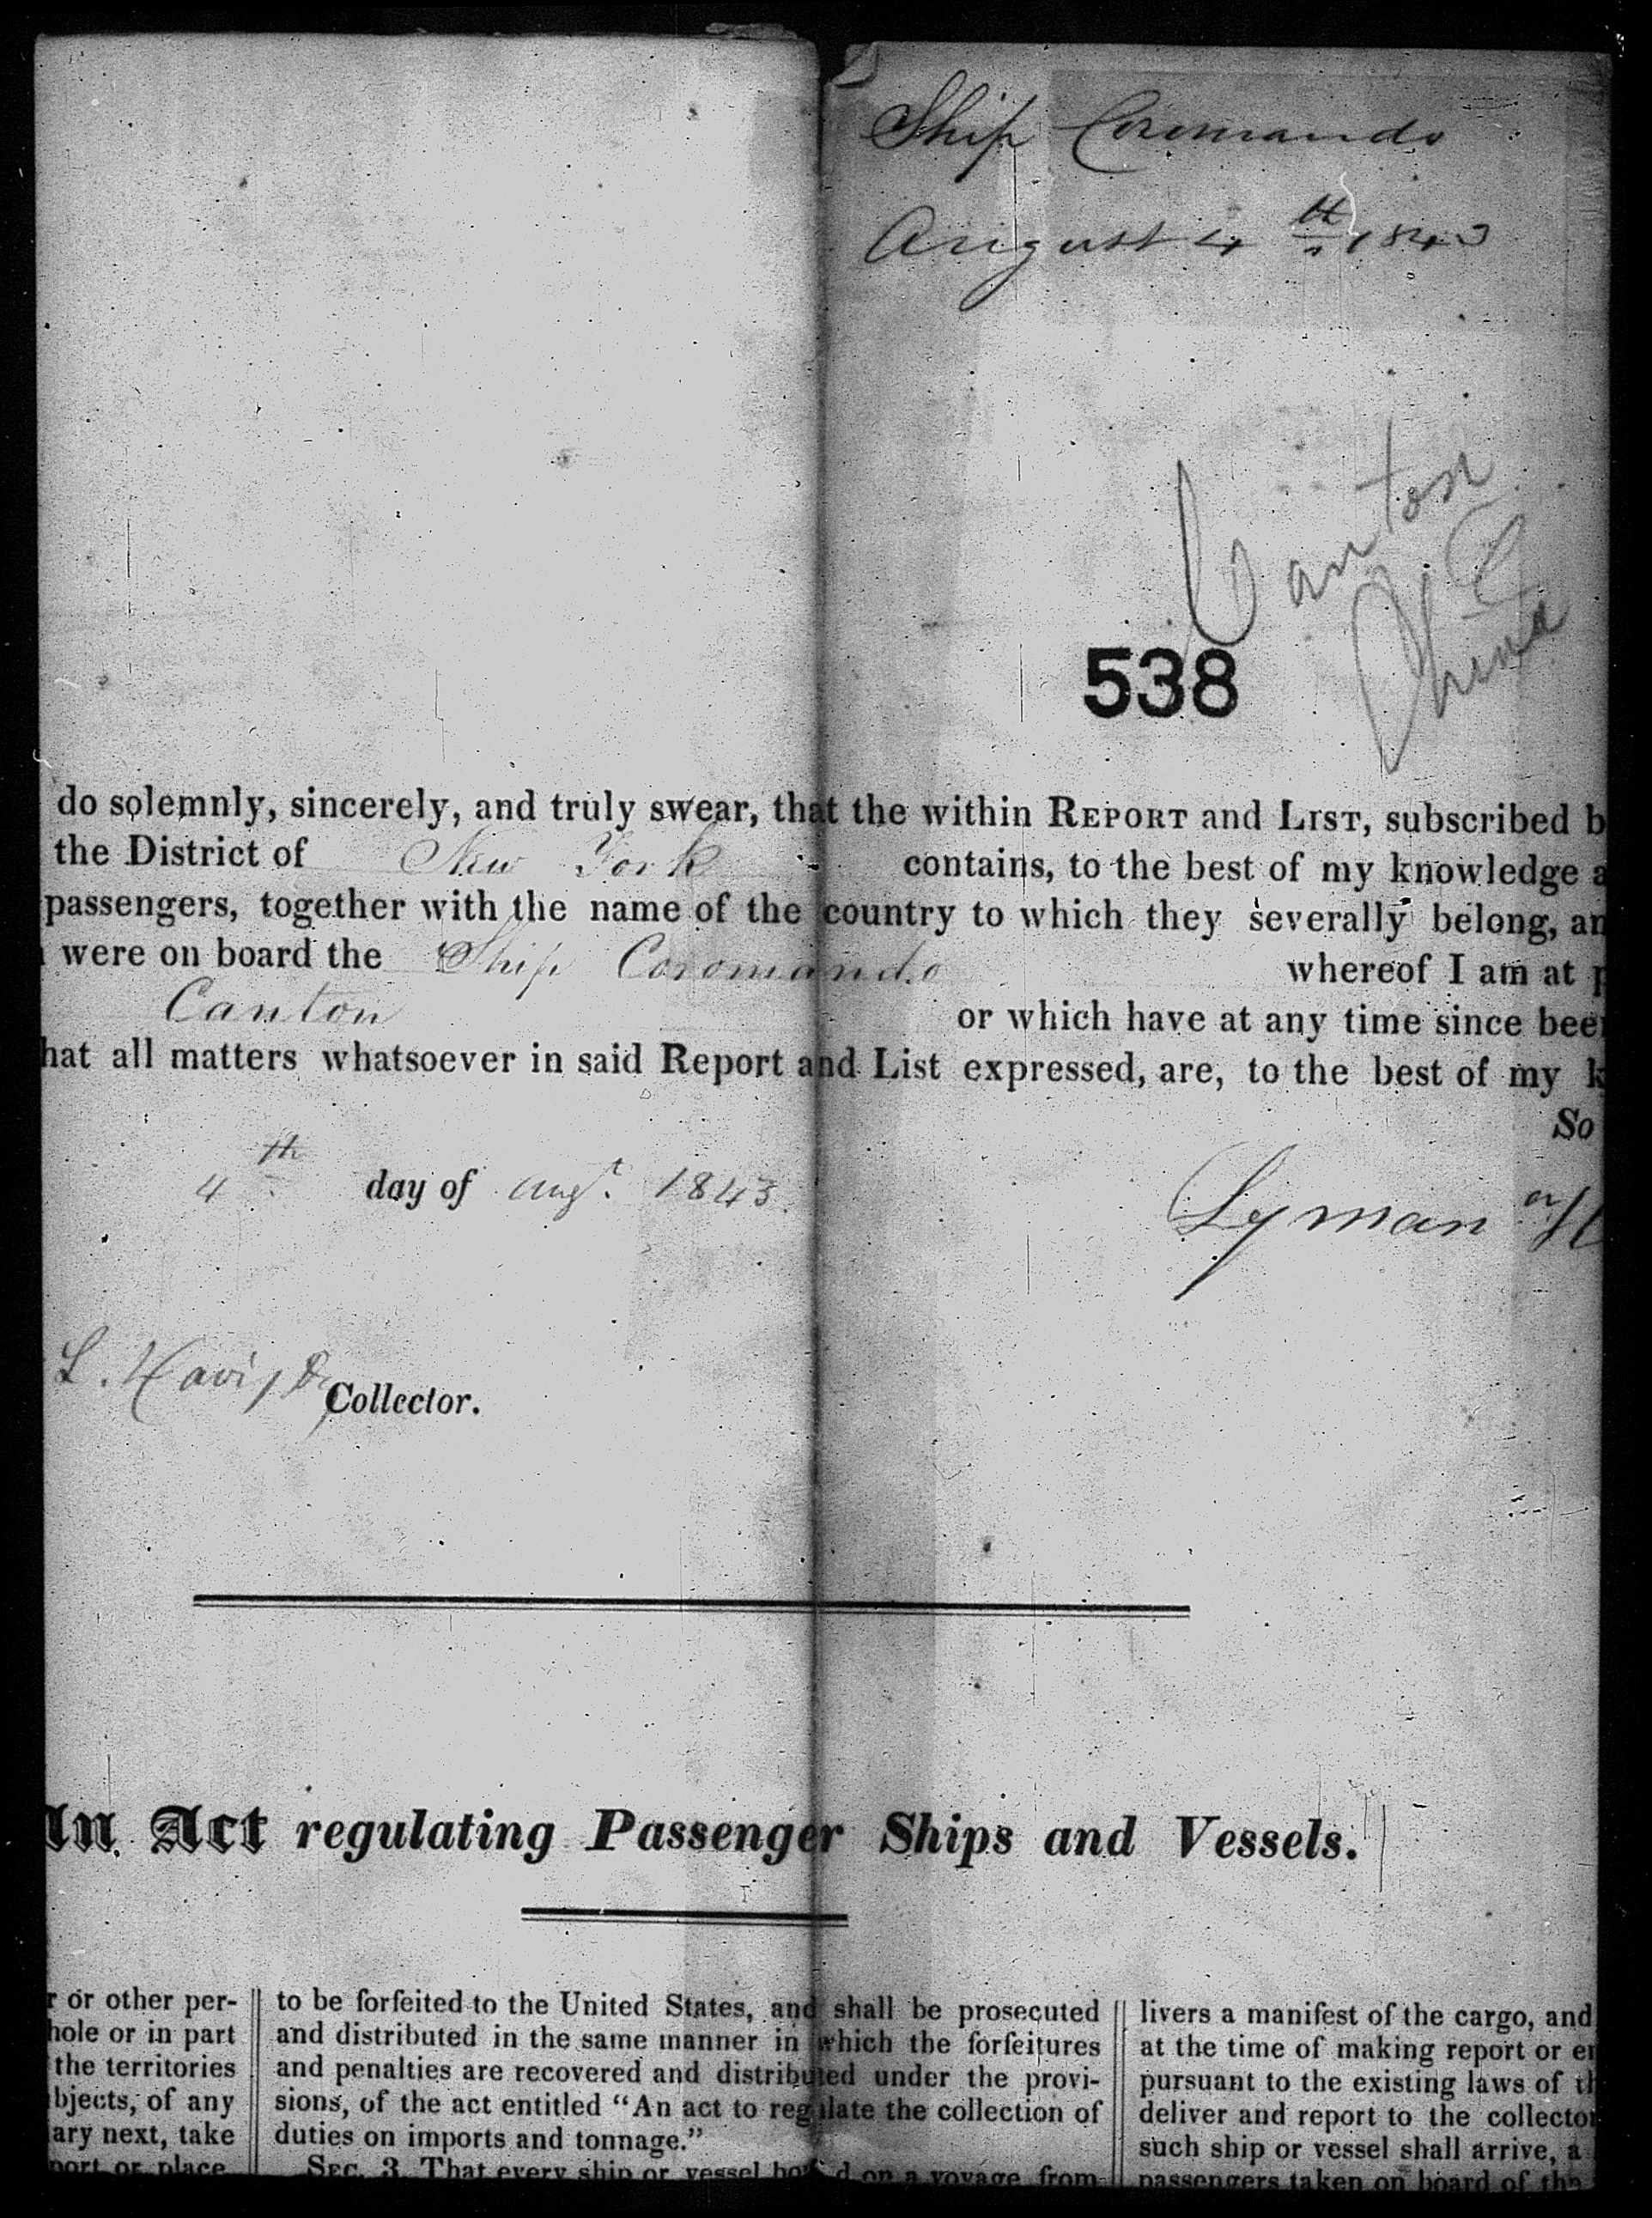 Ship Coromando
August 4th 1843
Canton
China
538
do solemnly, sincerely, and truly swear, that the within REPORT and LIST, subscribed b
the District of New York contains, to the best of my knowledge a
passengers, together with the name of the country to which they severally belong, an
were on board the Ship Coromando whereof I am at p
Canton or which have at any time since been
hat all matters whatsoever in said Report and List expressed, are, to the best of my k
So
4th day of Augt. 1843
Lyman
L. Collector.
An Act regulating Passenger Ships and Vessels.
r or other per-
hole or in part
the territories
bjects, of any
ary next, take
port or place
to be forfeited to the United States, and shall be prosecuted
and distributed in the same manner in which the forfeitures
and penalties are recovered and distributed under the provi-
sions, of the act entitled "An act to regulate the collection of
duties on imports and tonnage."
SEC. 3. That every ship or vessel bound on a voyage from
livers a manifest of the cargo, and
at the time of making report or en
pursuant to the existing laws of th
deliver and report to the collector
such ship or vessel shall arrive, a
passengers taken on board of the